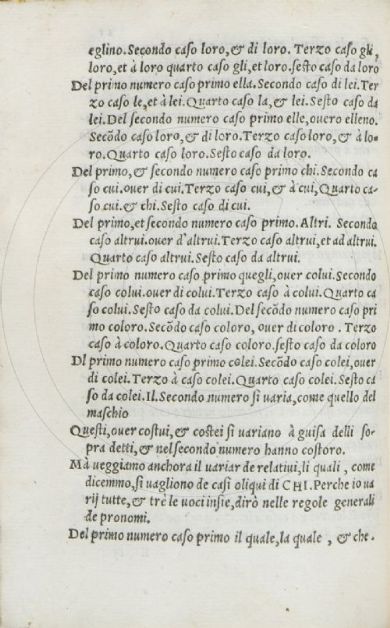 eglino. Secondo caſo loro, & di loro. Terzo caſo gli,
loro, et à loro quarto caſo gli, et loro. ſeſto caſo da loro
Del primo numero caſo primo ella. Secondo caſo di lei. Ter
zo caſo le, et à lei. Quarto caſo la, & lei. Seſto caſo da
lei. Del ſecondo numero caſo primo elle, ouero elleno.
Secōdo caſo loro, & di loro. Terzo caſo loro, & à lo-
ro. Quarto caſo loro. Seſto caſo da loro.
Del primo, & ſecondo numero caſo primo chi. Secondo ca
ſo cui. ouer di cui. Terzo caſo cui, & à cui, Quarto ca-
ſo cui. & chi. Seſto caſo di cui.
Del primo, et ſecondo numero caſo primo. Altri. Secondo
caſo altrui. ouer d'altrui. Terzo caſo altrui, et ad altrui.
Quarto caſo altrui. Seſto caſo da altrui.
Del primo numero caſo primo quegli, ouer colui. Secondo
caſo colui. ouer di colui. Terzo caſo à colui. Quarto ca
ſo colui. Seſto caſo da colui. Del ſecōdo numero caſo pri
mo coloro. Secōdo caſo coloro, ouer di coloro. Terzo
caſo à coloro. Quarto caſo coloro. ſeſto caſo da coloro
Dl primo numero caſo primo colei. Secōdo caſo colei, ouer
di colei. Terzo à caſo colei. Quarto caſo colei. Seſto ca
ſo da colei. Il. Secondo numero ſi varia, come quello del
maſchio
Queſti, ouer coſtui, & coſtei ſi variano à guiſa delli ſo-
pra detti, & nel ſecondo numero hanno coſtoro.
Ma veggiamo anchora il variar de relatiui, li quali, come
dicemmo, ſi vagliono de caſi oliqui di CHI. Perche io va
rij tutte, & trè le voci inſie, dirò nelle regole generali
de pronomi.
Del primo numero caſo primo il quale, la quale, & che.